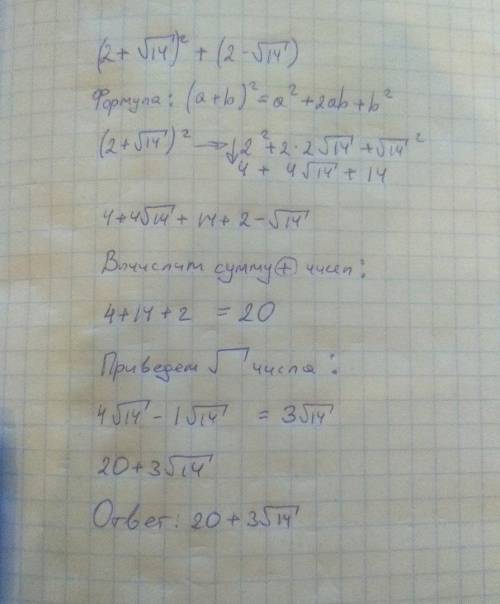 (2+√14)² + (2-√14)
Формула: (a+b)² = a² + 2ab + b²
(2+√14)² → 2² + 2·2√14 + √14²
↓ 4 + 4√14 + 14
4+4√14 + 14 + 2 - √14
Вычислим сумму (+) чисел:
4+14+2 = 20
Приведем √ числа:
4√14 - 1√14 = 3√14
20+3√14
Ответ: 20 + 3√14